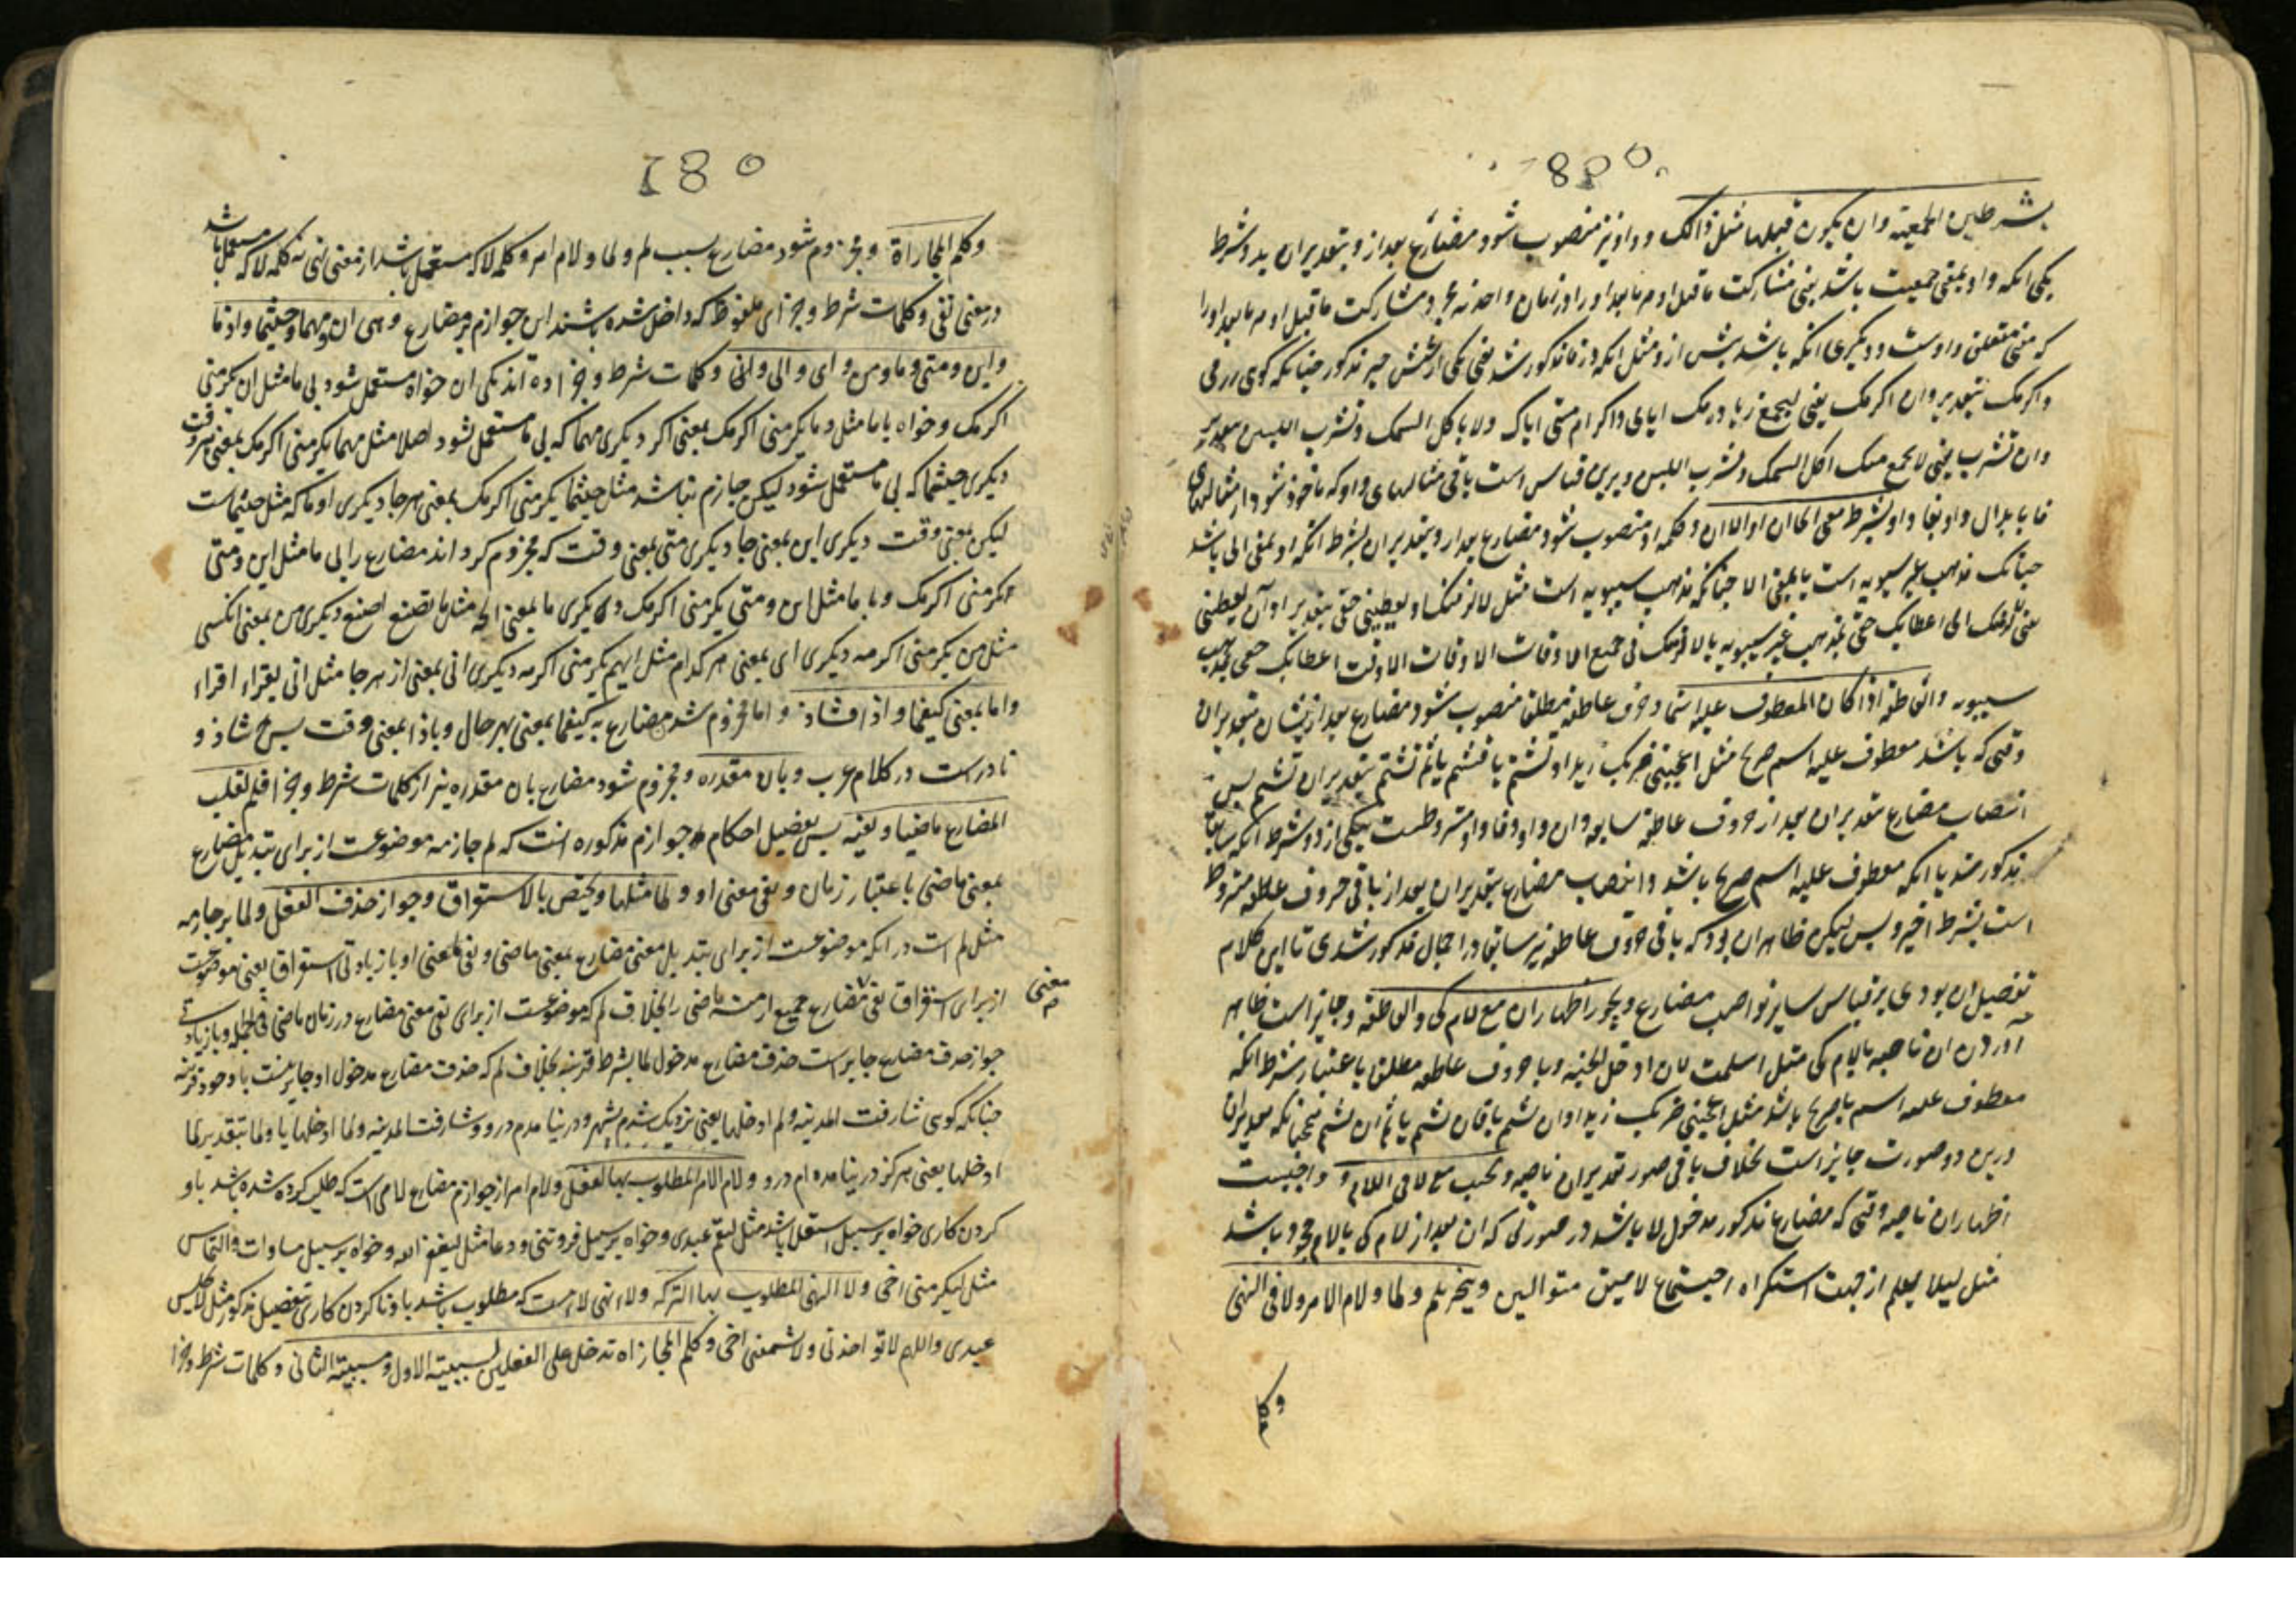 بشرطین الجمعیه وان یکون قبلها مثل ذالک و واو نیز منصوب شود مضارع بعد از و بتقدیر ان بدو شرط
یکی انکه واو بمعنی جمعیت باشد یعنی مشارکت ماقبل او مر مابعد او را در زمان واحد نه مجرد مشارکت ماقبل او مر مابعد او را
که معنی متعلق واوست و دیکری انکه باشد پیش از و مثل انکه در فا مذکور شد یعنی یکی از شش چیز مذکور چنانکه کوی زرنی
واکرمک بتقدیر وان اکرمک یعنی لیجمع زیارتک ایای واکرام منی ایاک ولا تاکل السمک وتشرب اللبن بتقدیر
وان تشرب یعنی لا یجمع منک اکل السمک وشرب اللبن و برین قیاس است باقی مثالهای واو که ماخوذ شود از مثالهای
فا بابدال واو بفا واو بشرط معنی الی ان او الا ان وکلمه او منصوب شود مضارع بعد از و بتقدیر ان بشرط انکه او بمعنی الی باشد
چنانک مذهب غیر سیبویه است یا بمعنی الا چنانکه مذهب سیبویه است مثل لالزمنک او یعطینی حقی بتقدیر او ان یعطینی
یعنی لالزمنک الی اعطایک حقی بمذهب غیر سیبویه یا لالزمنک فی جمیع الاوقات الا وقت اعطایک حقی بمذهب
سیبویه والعاطفة اذا کان المعطوف علیه اسما وحرف عاطفه مطلقا منصوب شود مضارع بعد از یشان بتقدیر ان
وقتی که باشد معطوف علیه اسم صریح مثل اعجبنی ضربک زیدا وتشتم یا فتشتم یا ثم تشتم بتقدیر ان تشتم پس
انتصاب مضارع بتقدیر ان بعد از حروف عاطفه سابقه وان واو وفا واو مشروطست بیکی از دو شرط انکه سابقا
مذکور شد یا انکه معطوف علیه اسم صریح باشد وانتصاب مضارع بتقدیر ان بعد از باقی حروف عاطفه مشروط
است بشرط اخیر و بس لیکن ظاهر ان بود که باقی حروف عاطفه نیز سابقا در اجمال مذکور شدی تا این کلام
تفصیل ان بودی بر قیاس سایر نواصب مضارع ویجوز اظهار ان مع لام کی والعاطفة وجایز است ظاهر
آوردن ان ناصبه با لام کی مثل اسلمت لان ادخل الجنه وبا حروف عاطفه مطلقا باعتبار شرط انکه
معطوف علیه اسم صریح باشد مثل اعجبنی ضربک زیدا وان تشتم یا فان تشتم یا ثم ان تشتم همچنانکه تقدیر ان
درین دو صورت جایز است بخلاف باقی صور تقدیر ان ناصبه ویجب مع لا فی اللام و واجبست
اظهار ان ناصبه وقتی که مضارع مذکور مدخول لا باشد در صورتی که ان بعد از لام کی یا لام جحود باشد
مثل لیلا یعلم از جهت استکراه اجتماع لامین متوالیین وینجزم بلم ولما ولام الامر ولا فی النهی
وکلم
وکلم المجازاة ومجزوم شود مضارع بسبب لم ولما ولام امر وکلمه لا که مستعمل باشد از معنی نهی نه کلمه لا که مستعمل باشد
در معنی نفی وکلمات شرط وجزای ملفوظ که داخل شده باشند این جوازم بر مضارع وهی ان ومهما وحیثما واذما
واین ومتی وما ومن وای وانی وکلمات شرط وجزا ده اند یکی ان خواه مستعمل شود بی ما مثل ان تکرمنی
اکرمک وخواه با ما مثل وما تکرمنی اکرمک بمعنی اکر دیکری مهما که بی ما مستعمل نشود اصلا مثل مهما تکرمنی اکرمک بمعنی هر وقت
دیکری حیثما که بی ما مستعمل شود لیکن جازم نباشد مثل حیثما تکرمنی اکرمک بمعنی هرجا دیکری اذما که مثل حیثماست
لیکن بمعنی وقت دیکری این بمعنی جا دیکری متی بمعنی وقت که مجزوم کرداند مضارع را بی ما مثل این ومتی
تکرمنی اکرمک وبا ما مثل این ومتی تکرمنی اکرمک دیکری ما بمعنی انچه مثل ما تصنع اصنع دیکری من بمعنی انکسی
مثل من یکرمنی اکرمه دیکری ای بمعنی هر کدام مثل ایهم یکرمنی اکرمه دیکری انی بمعنی از هرجا مثل انی تقراء اقراء
واما بمعنی کیفما واذا فشاذ واما مجزوم شدن مضارع به کیفما بمعنی بهر حال وباذا بمعنی وقت پس شاذ و
نادر است در کلام عرب وبان مقدره ومجزوم شود مضارع بان مقدره نیز از کلمات شرط وجزا فلم لقلب
المضارع ماضیا ونفیه پس تفصیل احکام جوازم مذکوره انست که لم جازمه موضوعست از برای تبدیل مضارع
بمعنی ماضی باعتبار زمان ونفی معنی او ولما مثلها ویختص بالاستغراق وجواز حذف الفعل ولما بر جازمه
مثل لم است در انکه موضوعست از برای تبدیل معنی مضارع بمعنی ماضی ونفی معنی او با زیادتی استغراق یعنی موضوعست
از برای استغراق نفی مضارع جمیع ازمنه ماضی را بخلاف لم که موضوعست از برای نفی معنی مضارع در زمان ماضی فی الجمله وبا زیادتی
معنی
جواز حذف مضارع جایز است حذف مضارع مدخول لما بشرط قرینه بخلاف لم که حذف مضارع مدخول او جایز نیست با وجود قرینه
چنانکه کوی شارفت المدینه ولم ادخلها یعنی نزدیک شدم بشهر ودر نیامدم درو وشارفت المدینه ولما ادخلها یا ولما بتقدیر لما
ادخلها یعنی هرکز در نیامده ام درو ولام الامر المطلوب بها الفعل ولام امر از جوازم مضارع لامی است که طلب کرده شده باشد باو
کردن کاری خواه بر سبیل استعلا باشد مثل لیقم عبدی وخواه بر سبیل فروتنی ودعا مثل لیغفر الله وخواه بر سبیل مساوات والتماس
مثل لیکرمنی اخی ولا النهی المطلوب بها الترک ولاء نهی لاءیست که مطلوب باشد باو ناکردن کاری بتفصیل مذکور مثل
عبدی واللهم لا تواخذنی ولا تشتمنی اخی وکلم المجازاه تدخل علی الفعلین لسببیة الاول ومسببیة الثانی وکلمات شرط وجزا